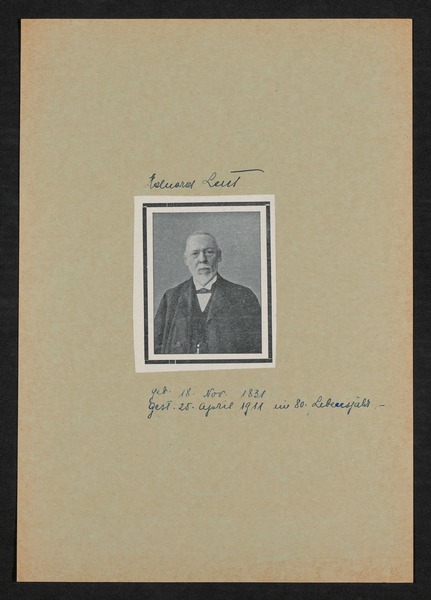 Eduard Leist
geb. 18. Nov. 1831
gest. 25. April 1911 im 80. Lebensjahr –